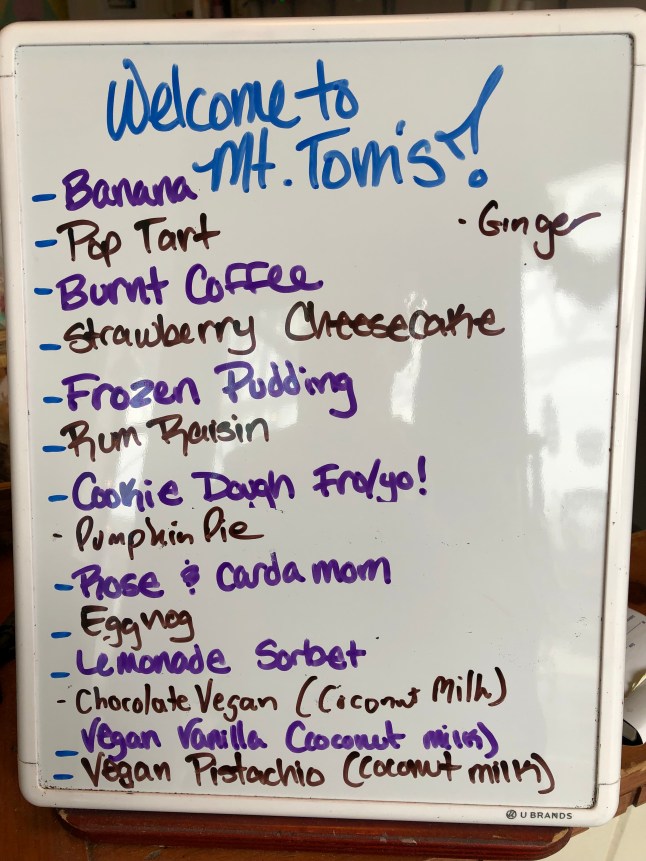 Welcome to
Mt. Tom's!
- Banana
- Pop Tart
- Ginger
- Burnt Coffee
- Strawberry Cheesecake
- Frozen Pudding
- Rum Raisin
- Cookie Dough Fro/yo!
- Pumpkin Pie
- Rose & Cardamom
- Eggnog
- Lemonade Sorbet
- Chocolate Vegan (Coconut Milk)
- Vegan Vanilla (coconut milk)
- Vegan Pistachio (coconut milk)
U BRANDS